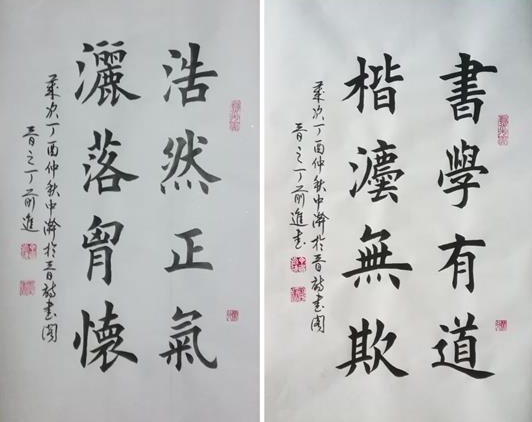 浩然正氣
灑落胷懷
歲次丁酉仲秋中澣於晉書閣
晉之丁前進
書學有道
楷灋無欺
歲次丁酉仲秋中澣於晉書閣
晉之丁前進書